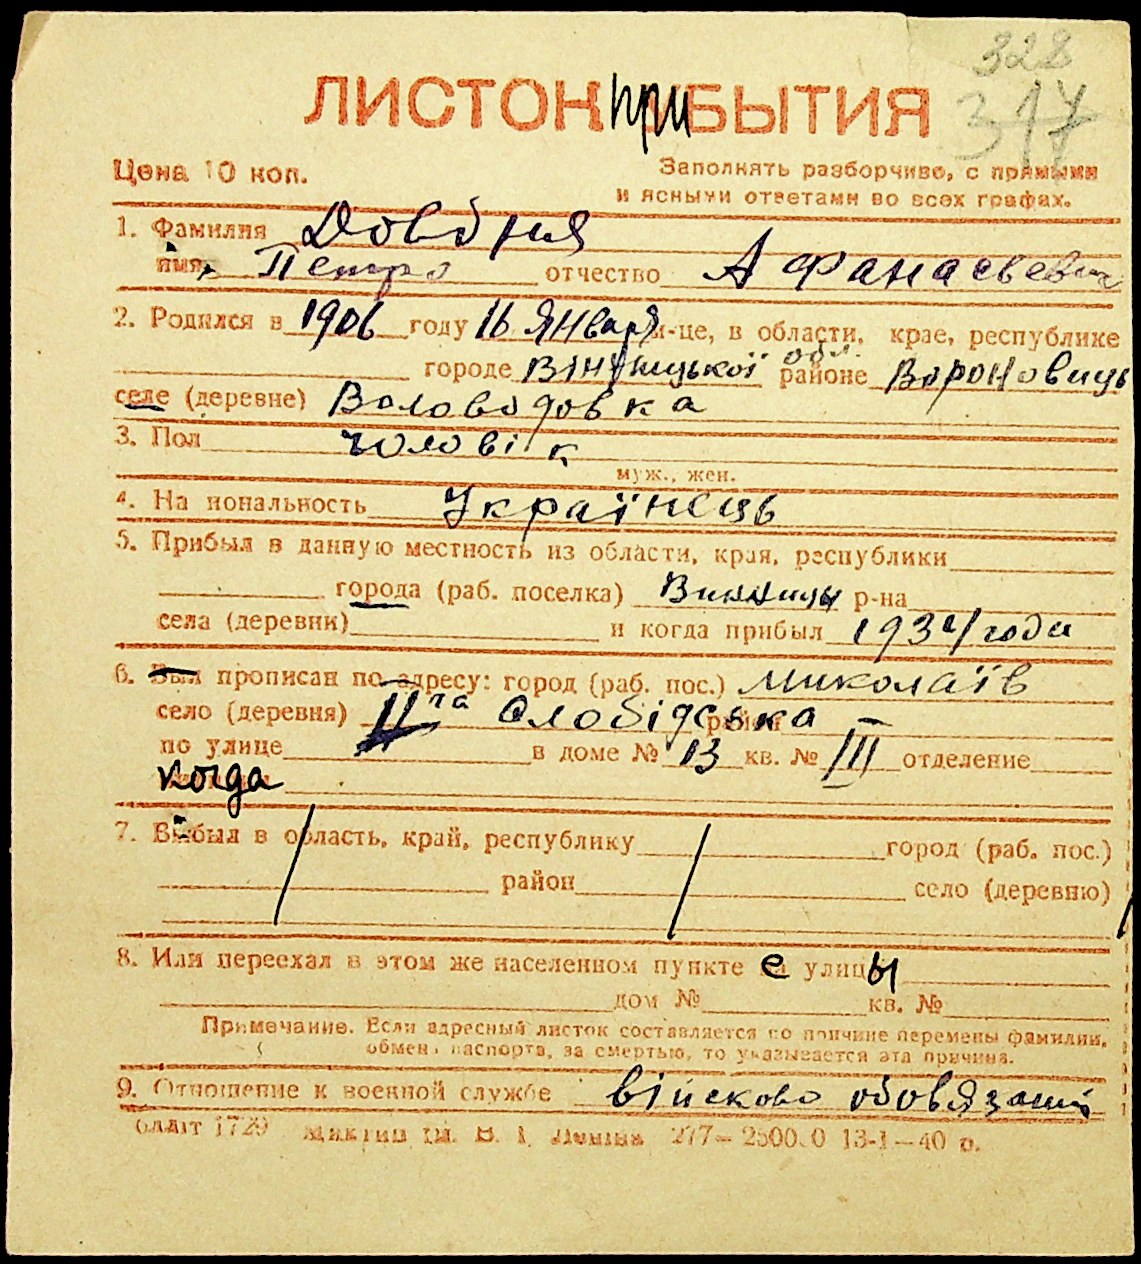 328
317
ЛИСТОК при БЫТИЯ
Цена 10 коп.
Заполнять разборчиво, с прямыми
и ясными ответами во всех графах.
1. Фамилия Довбня
имя Петро отчество Афанасьевич
2. Родился в 1906 году 16 Января м-це, в области, крае, республике
городе Вінницької обл. районе Вороновиць
селе (деревне) Воловодовка
3. Пол чоловік
муж., жен.
4. Национальность Українець
5. Прибыл в данную местность из области, края, республики
города (раб. поселка) Винницы р-на
села (деревни) и когда прибыл 1934 года
6. Был прописан по адресу: город (раб. пос.) Миколаїв
село (деревня) 11та Слобідська район
по улице в доме № 13 кв. № III отделение
когда
7. Выбыл в область, край, республику город (раб. пос.)
район село (деревню)
8. Или переехал в этом же населенном пункте с улицы
дом № кв. №
Примечание. Если адресный листок составляется по причине перемены фамилии,
обмена паспорта, за смертью, то указывается эта причина.
9. Отношение к военной службе військово обовязаний
1729 им. В. І. Леніна 277—25000 13-1—40 р.